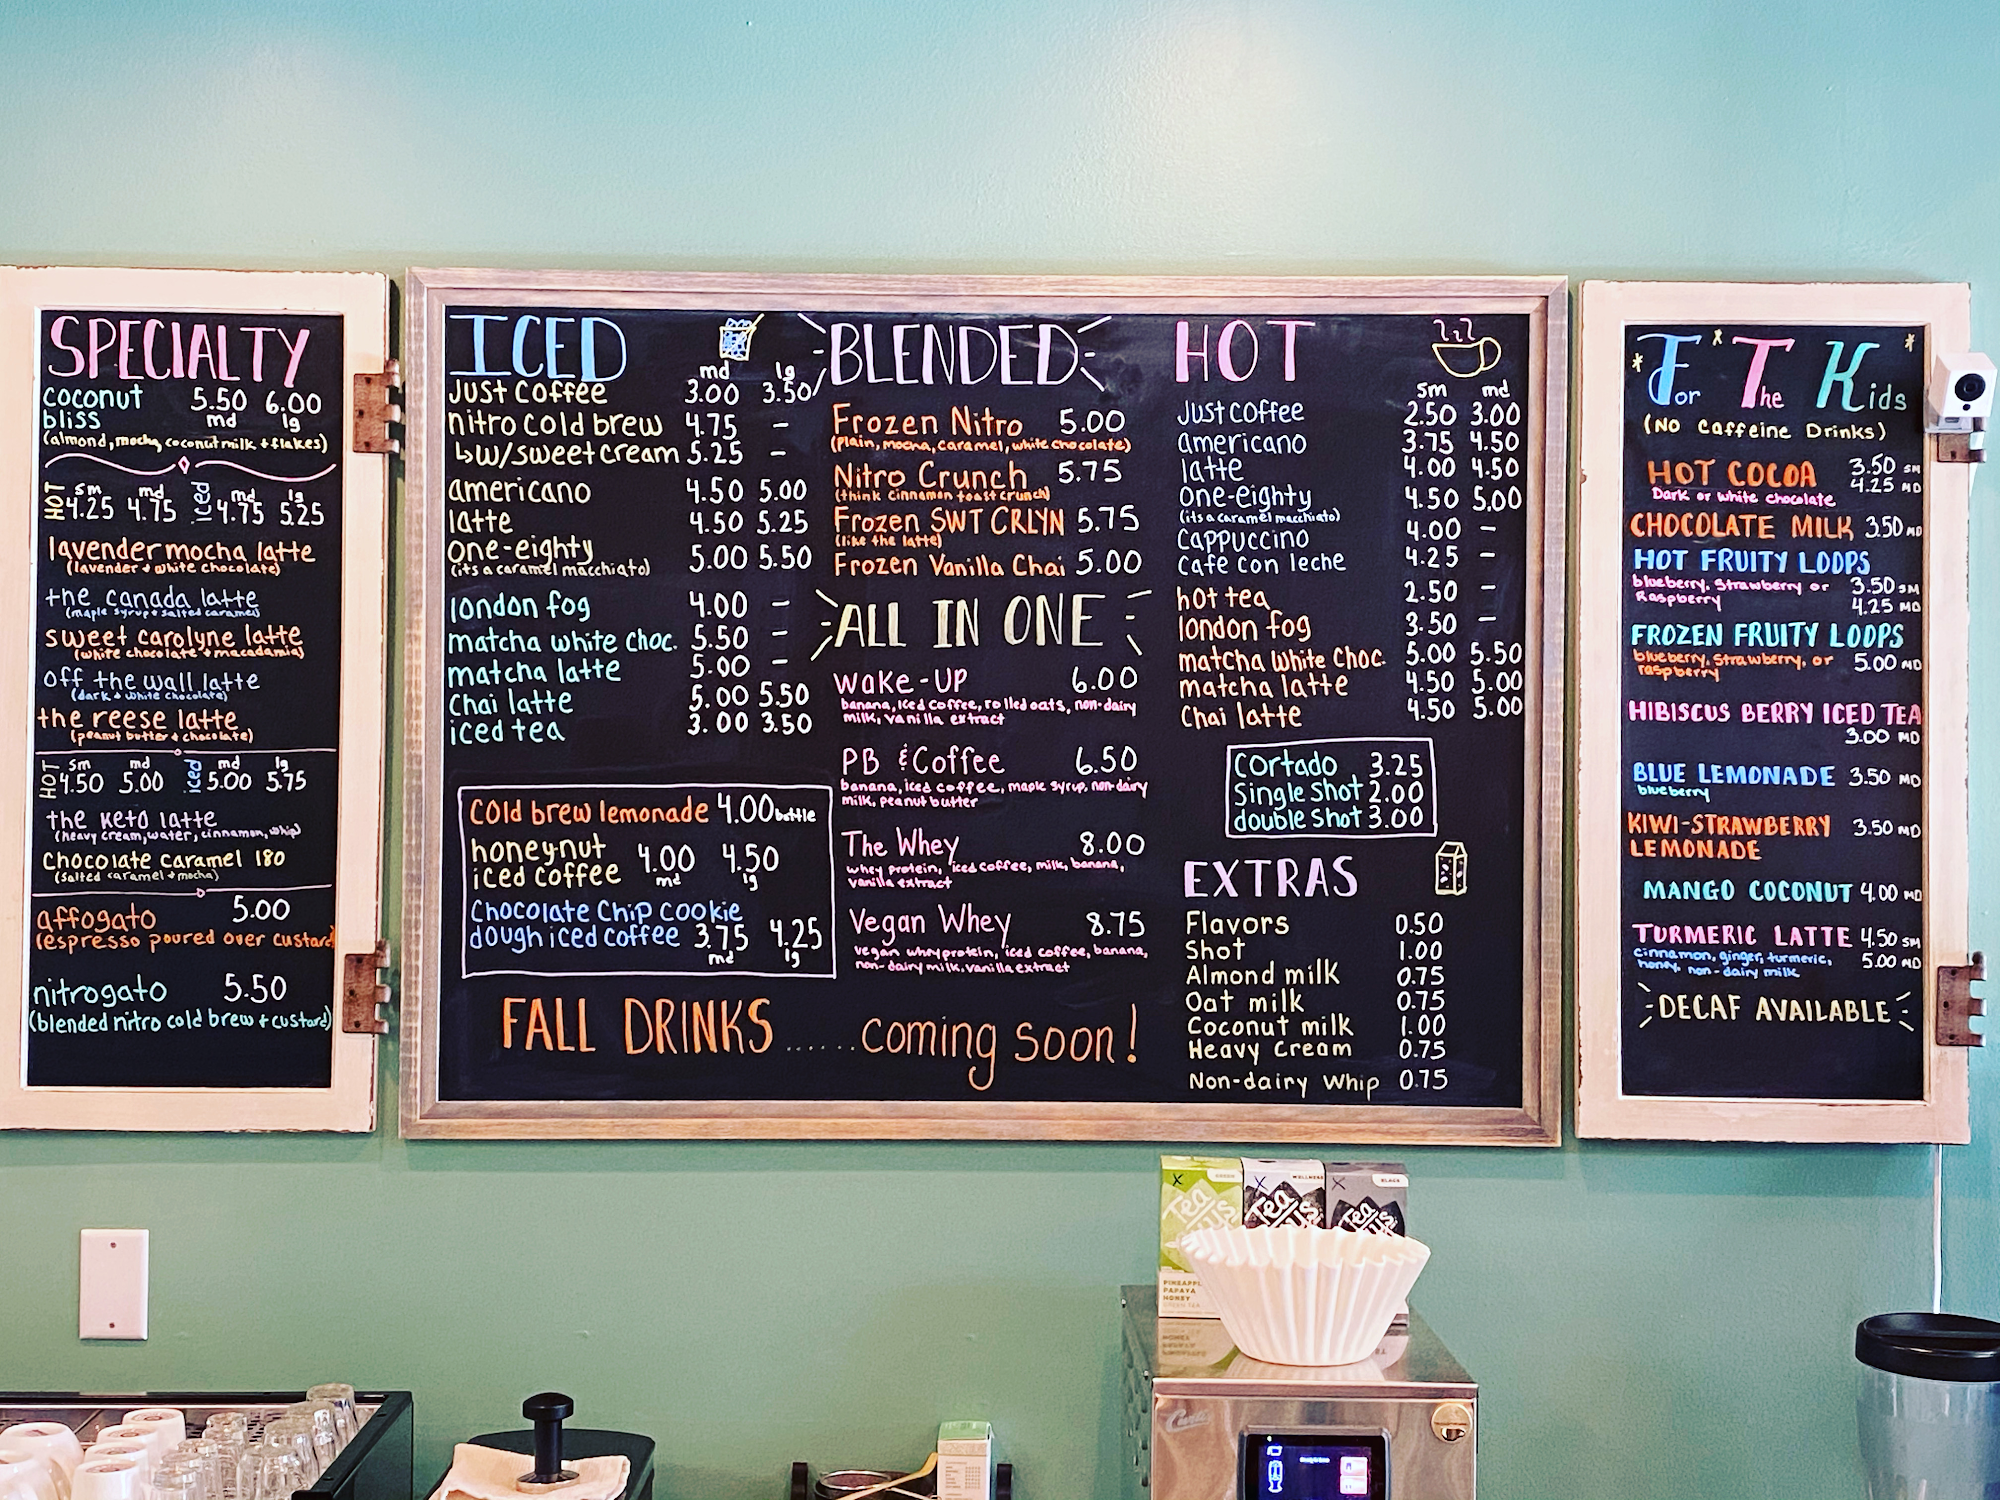 SPECIALTY
coconut 5.50 6.00
bliss md lg
(almond, mocha, coconut milk + flakes)
HOT sm md iced md lg
4.25 4.75 4.75 5.25
lavender mocha latte
(lavender + white chocolate)
the canada latte
(maple syrup + salted caramel)
sweet carolyne latte
(white chocolate + macadamia)
off the wall latte
(dark + white chocolate)
the reese latte
(peanut butter + chocolate)
HOT sm md iced md lg
4.50 5.00 5.00 5.75
the keto latte
(heavy cream, water, cinnamon, whip)
chocolate caramel 180
(salted caramel + mocha)
affogato 5.00
(espresso poured over custard
nitrogato 5.50
(blended nitro cold brew + custard)
ICED
md lg
Just coffee 3.00 3.50
nitro cold brew 4.75 -
↳w/sweet cream 5.25 -
americano 4.50 5.00
latte 4.50 5.25
one-eighty 5.00 5.50
(its a caramel macchiato)
london fog 4.00 -
matcha white choc. 5.50 -
matcha latte 5.00 -
Chai latte 5.00 5.50
iced tea 3.00 3.50
cold brew lemonade 4.00 bottle
honey-nut
iced coffee 4.00 4.50
md lg
Chocolate Chip cookie
dough iced coffee 3.75 4.25
md lg
BLENDED
Frozen Nitro 5.00
(plain, mocha, caramel, white chocolate)
Nitro Crunch 5.75
(think cinnamon toast crunch)
Frozen SWT CRLYN 5.75
(like the latte)
Frozen Vanilla Chai 5.00
ALL IN ONE
Wake-UP 6.00
banana, iced coffee, rolled oats, non-dairy
milk, vanilla extract
PB & Coffee 6.50
banana, iced coffee, maple syrup, non-dairy
milk, peanut butter
The Whey 8.00
whey protein, iced coffee, milk, banana,
vanilla extract
Vegan Whey 8.75
vegan whey protein, iced coffee, banana,
non-dairy milk, vanilla extract
FALL DRINKS ...... coming soon!
HOT
sm md
Just coffee 2.50 3.00
americano 3.75 4.50
latte 4.00 4.50
one-eighty 4.50 5.00
(its a caramel macchiato)
cappuccino 4.00 -
Cafe con leche 4.25 -
hot tea 2.50 -
london fog 3.50 -
matcha white choc. 5.00 5.50
matcha latte 4.50 5.00
Chai latte 4.50 5.00
cortado 3.25
Single shot 2.00
double shot 3.00
EXTRAS
Flavors 0.50
Shot 1.00
Almond milk 0.75
Oat milk 0.75
Coconut milk 1.00
Heavy Cream 0.75
Non-dairy Whip 0.75
For The Kids
(No Caffeine Drinks)
HOT COCOA 3.50 SM
4.25 MD
Dark or white chocolate
CHOCOLATE MILK 3.50 MD
HOT FRUITY LOOPS
blueberry, Strawberry or 3.50 SM
Raspberry 4.25 MD
FROZEN FRUITY LOOPS
blueberry, Strawberry, or 5.00 MD
raspberry
HIBISCUS BERRY ICED TEA
3.00 MD
BLUE LEMONADE 3.50 MD
blueberry
KIWI-STRAWBERRY 3.50 MD
LEMONADE
MANGO COCONUT 4.00 MD
TURMERIC LATTE 4.50 SM
cinnamon, ginger, turmeric, 5.00 MD
honey, non-dairy milk
DECAF AVAILABLE
GREEN
WELLNESS
BLACK
Tea
Tea
Tea
PINEAPPL
PAPAYA
HONEY
GREEN TEA
Curtis